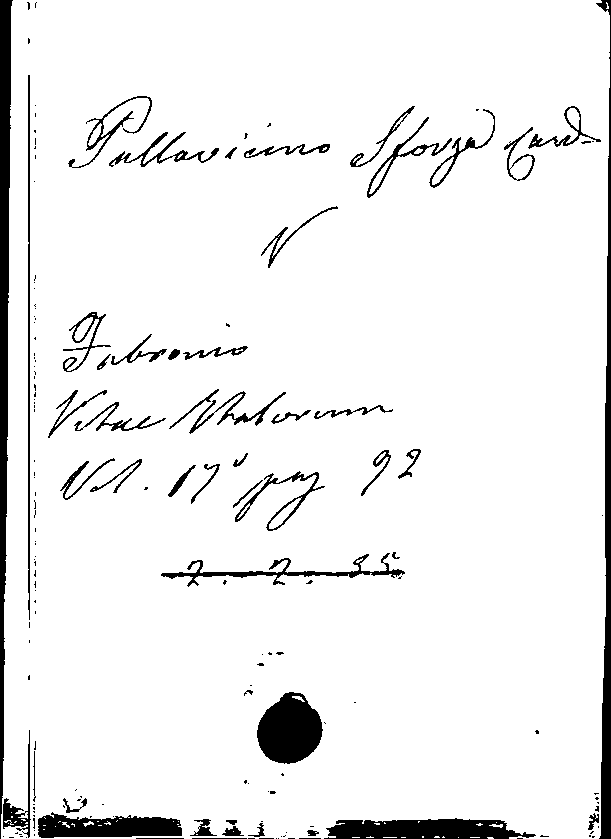 Pallavicino Sforza Card.
V
Fabronio
Vitae Italorum
Vol. 17° pag 92
2. 2. 35